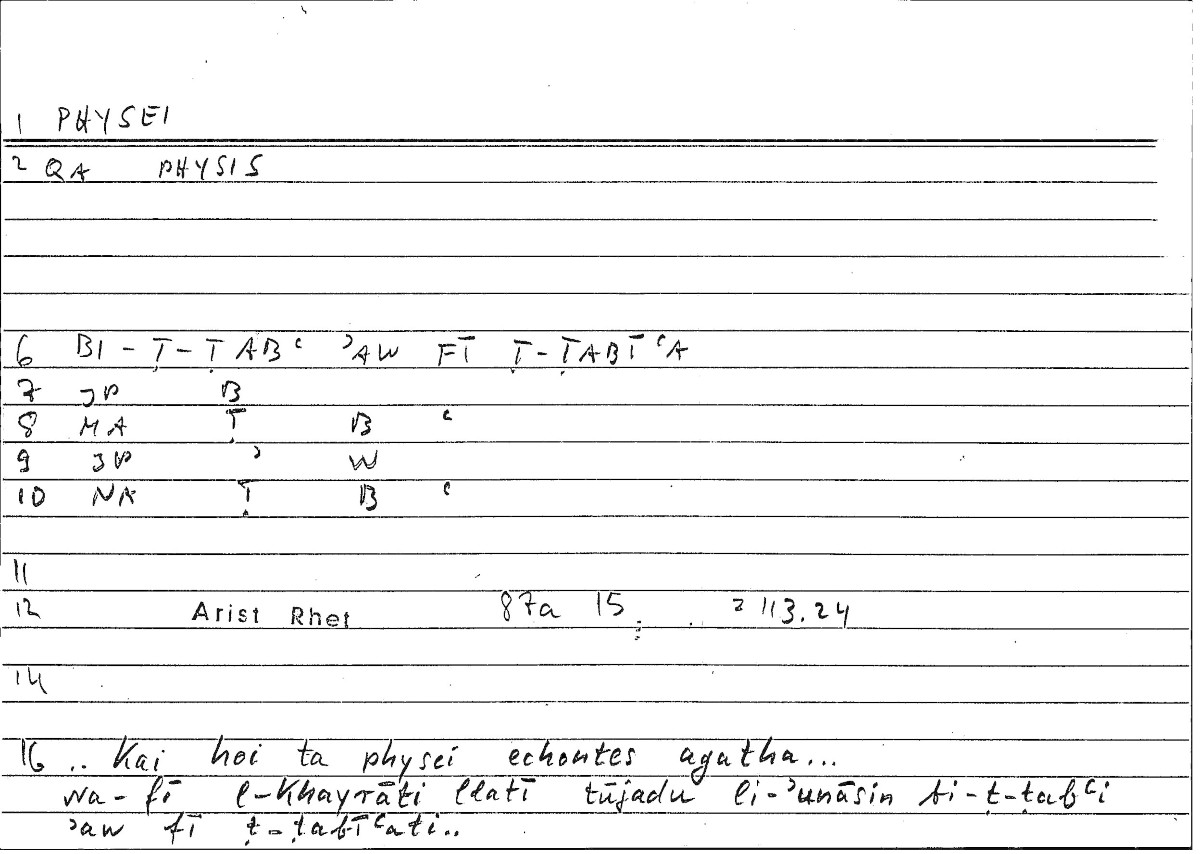 1 PHYSEI
2 QA PHYSIS
6 BI-Ṭ-ṬABʿ ʾAW FĪ Ṭ-ṬABĪʿA
7 JP B
8 MA Ṭ B ʿ
9 JP ʾ W
10 NA Ṭ B ʿ
11
12 Arist Rhet 87a 15 = 113.24
14
16 .. Kai hoi ta physei echontes agatha...
wa-fī l-khayrāti llatī tūjadu li-ʾunāsin bi-ṭ-ṭabʿi
ʾaw fī ṭ-ṭabīʿati..